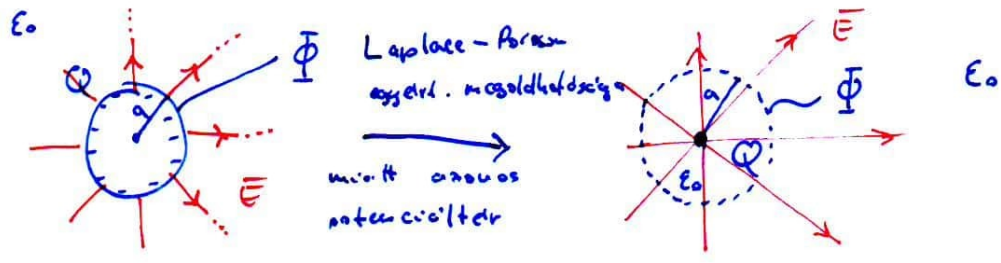 ε₀
Q
a
Φ
E̅
Laplace - Poisson
egyért. megoldhatósága
miatt azonos
potenciáltér
E̅
a
Φ
ε₀
Q
ε₀